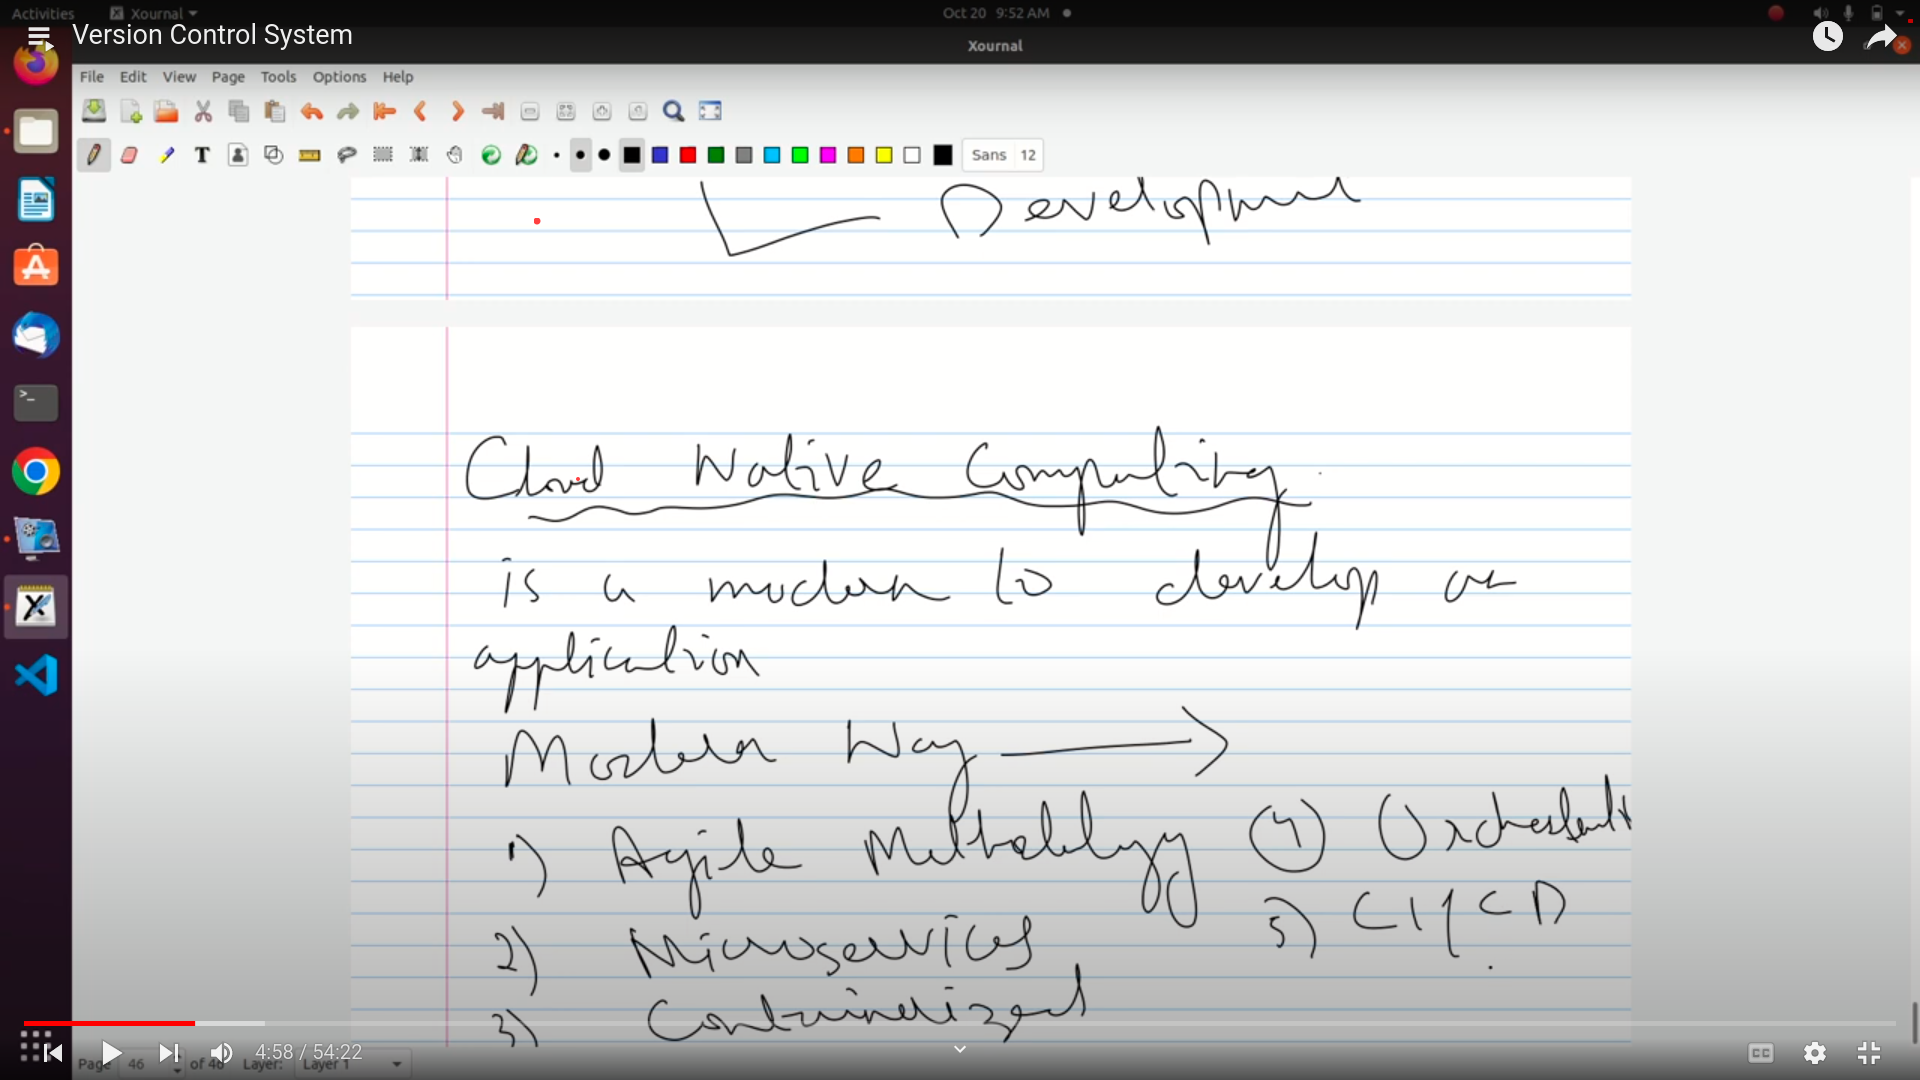 Activities Xournal Oct 20 9:52 AM
Version Control System
Xournal
File Edit View Page Tools Options Help
T Sans 12
Development
Cloud Native Computing
is a modern to develop an
application
Modern Way
1) Agile Methodology 4 Orchestrat
2) Microservices 5) CI/CD
3) Containerized
4:58 / 54:22 CC
Page 46 of 46 Layer: Layer 1